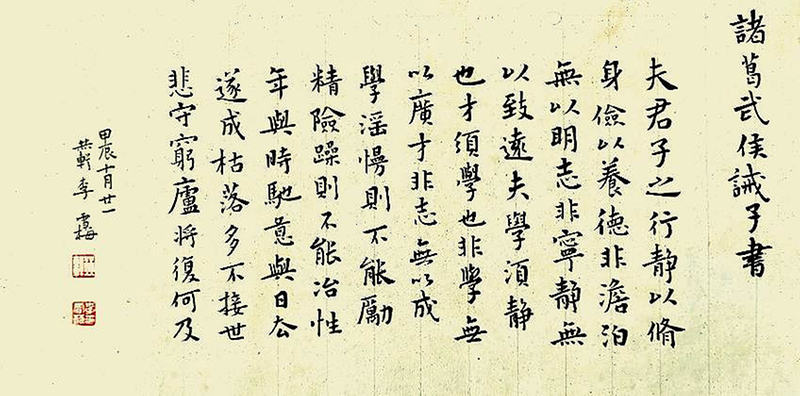 諸葛武侯誡子書
夫君子之行靜以脩
身儉以養德非澹泊
無以明志非寧靜無
以致遠夫學須靜
也才須學也非學無
以廣才非志無以成
學滛慢則不能勵
精險躁則不能冶性
年與時馳意與日去
遂成枯落多不接世
悲守窮廬將復何及
甲辰十月廿一
李